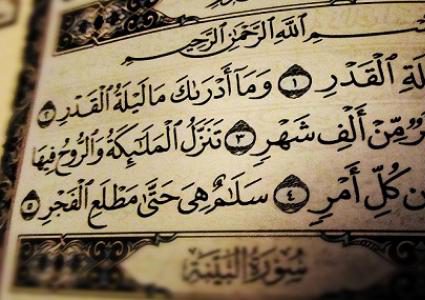 ـسم الله الرحمن الرحيم
ـلة القدر ١ وما أدرىك ما ليلة القدر ٢
ـر من ألف شهر ٣ تنزل الملىكة والروح فيها
ـن كل أمر ٤ سلـم هى حتى مطلع الفجر ٥
سورة البينة